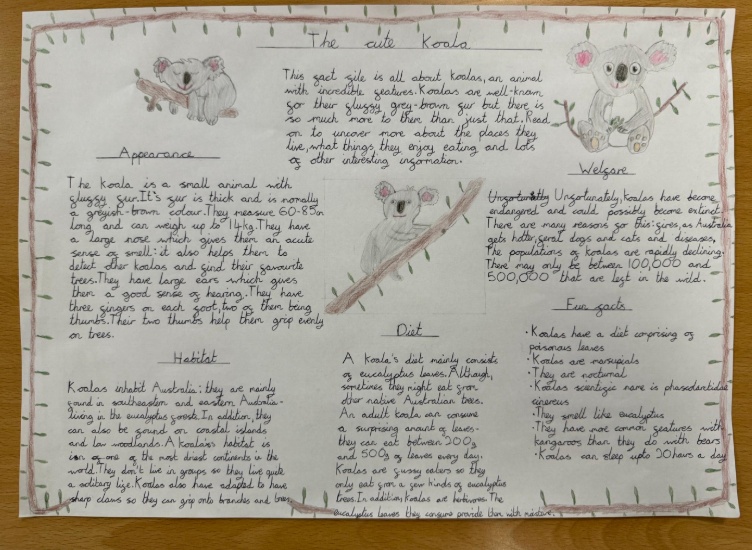 The cute Koala
This fact file is all about koalas, an animal
with incredible features. Koalas are well-known
for their fluffy grey-brown fur but there is
so much more to them than just that. Read
on to uncover more about the places they
live, what things they enjoy eating and lots
of other interesting information.
Appearance
The koala is a small animal with
fluffy fur. It's fur is thick and is normally
a greyish-brown colour. They measure 60-85cm
long and can weigh up to 14kg. They have
a large nose which gives them an acute
sense of smell: it also helps them to
detect other koalas and find their favourite
trees. They have large ears which gives
them a good sense of hearing. They have
three fingers on each foot, two of them being
thumbs. Their two thumbs help them grip evenly
on trees.
Habitat
Koalas inhabit Australia: they are mainly
found in southeastern and eastern Australia-
living in the eucalyptus forests. In addition, they
can also be found on coastal islands
and low woodlands. A koala's habitat is
one of the most driest continents in the
world. They don't live in groups so they live quite
a solitary life. Koalas also have adapted to have
sharp claws so they can grip onto branches and trees.
Diet
A koala's diet mainly consists
of eucalyptus leaves. Although,
sometimes they might eat from
other native Australian trees.
An adult koala can consume
a surprising amount of leaves-
they can eat between 200g
and 500g of leaves every day.
Koalas are fussy eaters so they
only eat from a few kinds of eucalyptus
trees. In addition, Koalas are herbivores. The
eucalyptus leaves they consume provide them with moisture.
Welfare
Unfortunately, Koalas have become
endangered and could possibly become extinct.
There are many reasons for this: fires, as Australia
gets hotter, feral dogs and cats and diseases.
The populations of koalas are rapidly declining.
There may only be between 100,000 and
500,000 that are left in the wild.
Fun facts
• Koalas have a diet comprising of
poisonous leaves
• Koalas are marsupials
• They are nocturnal
• Koalas scientific name is phascolarctidae
cinereus
• They smell like eucalyptus
• They have more common features with
kangaroos than they do with bears
• Koalas can sleep upto 20hours a day